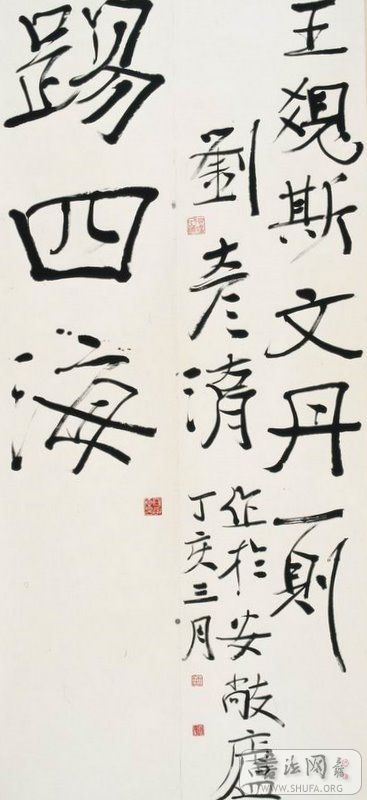 王斯文丹一則
劉彦
作於安敞廬
丁亥三月
踢四海
書法网
WWW.SHUFA.ORG